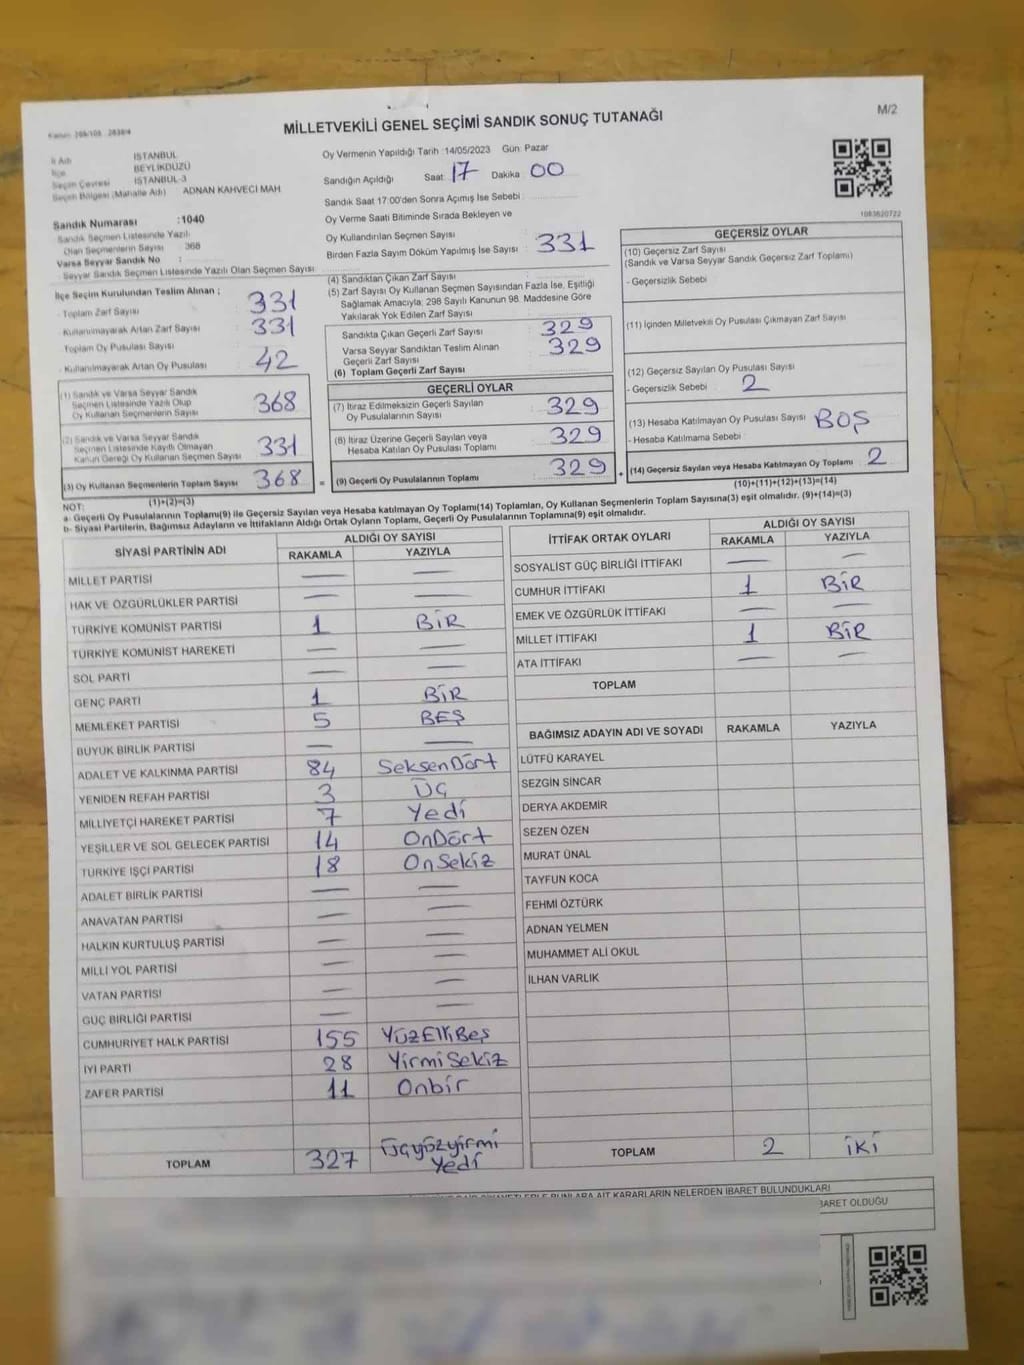 M/2
MİLLETVEKİLİ GENEL SEÇİMİ SANDIK SONUÇ TUTANAĞI
İl Adı İSTANBUL
İlçe BEYLİKDÜZÜ
Seçim Çevresi İSTANBUL-3
Seçim Bölgesi (Mahalle Adı) ADNAN KAHVECİ MAH
Sandık Numarası :1040
Sandık Seçmen Listesinde Yazılı
Olan Seçmenlerin Sayısı 368
Varsa Seyyar Sandık No :
Seyyar Sandık Seçmen Listesinde Yazılı Olan Seçmen Sayısı
Oy Vermenin Yapıldığı Tarih :14/05/2023 Gün: Pazar
Sandığın Açıldığı Saat 17 Dakika 00
Sandık Saat 17:00'den Sonra Açımış İse Sebebi
Oy Verme Saati Bitiminde Sırada Bekleyen ve
Oy Kullandırılan Seçmen Sayısı
Birden Fazla Sayım Döküm Yapılmış İse Sayısı 331
1083620722
İlçe Seçim Kurulundan Teslim Alınan ;
- Toplam Zarf Sayısı 331
- Kullanılmayarak Artan Zarf Sayısı 331
Toplam Oy Pusulası Sayısı
- Kullanılmayarak Artan Oy Pusulası 42
(1) Sandık ve Varsa Seyyar Sandık
Seçmen Listesinde Yazılı Olup
Oy Kullanan Seçmenlerin Sayısı 368
(2) Sandık ve Varsa Seyyar Sandık
Seçmen Listesinde Kayıtlı Olmayan
Kanun Gereği Oy Kullanan Seçmen Sayısı 331
(3) Oy Kullanan Seçmenlerin Toplam Sayısı 368
(1)+(2)=(3)
(4) Sandıktan Çıkan Zarf Sayısı
(5) Zarf Sayısı Oy Kullanan Seçmen Sayısından Fazla İse, Eşitliği
Sağlamak Amacıyla; 298 Sayılı Kanunun 98. Maddesine Göre
Yakılarak Yok Edilen Zarf Sayısı
Sandıkta Çıkan Geçerli Zarf Sayısı 329
Varsa Seyyar Sandıktan Teslim Alınan
Geçerli Zarf Sayısı 329
(6) Toplam Geçerli Zarf Sayısı
GEÇERLİ OYLAR
(7) İtiraz Edilmeksizin Geçerli Sayılan
Oy Pusulalarının Sayısı 329
(8) İtiraz Üzerine Geçerli Sayılan veya
Hesaba Katılan Oy Pusulası Toplamı 329
= (9) Geçerli Oy Pusulalarının Toplamı 329 +
GEÇERSİZ OYLAR
(10) Geçersiz Zarf Sayısı
(Sandık ve Varsa Seyyar Sandık Geçersiz Zarf Toplamı)
- Geçersizlik Sebebi
(11) İçinden Milletvekili Oy Pusulası Çıkmayan Zarf Sayısı
(12) Geçersiz Sayılan Oy Pusulası Sayısı
- Geçersizlik Sebebi 2
(13) Hesaba Katılmayan Oy Pusulası Sayısı BOŞ
- Hesaba Katılmama Sebebi
(14) Geçersiz Sayılan veya Hesaba Katılmayan Oy Toplamı 2
(10)+(11)+(12)+(13)=(14)
NOT:
a- Geçerli Oy Pusulalarının Toplamı(9) ile Geçersiz Sayılan veya Hesaba katılmayan Oy Toplamı(14) Toplamları, Oy Kullanan Seçmenlerin Toplam Sayısına(3) eşit olmalıdır. (9)+(14)=(3)
b- Siyasi Partilerin, Bağımsız Adayların ve İttifakların Aldığı Ortak Oyların Toplamı, Geçerli Oy Pusulalarının Toplamına(9) eşit olmalıdır.
SİYASİ PARTİNİN ADI ALDIĞI OY SAYISI
RAKAMLA YAZIYLA
MİLLET PARTİSİ — —
HAK VE ÖZGÜRLÜKLER PARTİSİ — —
TÜRKİYE KOMÜNİST PARTİSİ 1 BİR
TÜRKİYE KOMÜNİST HAREKETİ — —
SOL PARTİ — —
GENÇ PARTİ 1 BİR
MEMLEKET PARTİSİ 5 BEŞ
BÜYÜK BİRLİK PARTİSİ — —
ADALET VE KALKINMA PARTİSİ 84 SeksenDört
YENİDEN REFAH PARTİSİ 3 ÜÇ
MİLLİYETÇİ HAREKET PARTİSİ 7 Yedi
YEŞİLLER VE SOL GELECEK PARTİSİ 14 OnDört
TÜRKİYE İŞÇİ PARTİSİ 18 OnSekiz
ADALET BİRLİK PARTİSİ — —
ANAVATAN PARTİSİ — —
HALKIN KURTULUŞ PARTİSİ — —
MİLLİ YOL PARTİSİ — —
VATAN PARTİSİ — —
GÜÇ BİRLİĞİ PARTİSİ — —
CUMHURİYET HALK PARTİSİ 155 YüzElliBeş
İYİ PARTİ 28 YirmiSekiz
ZAFER PARTİSİ 11 Onbir
TOPLAM 327 Üçyüzyirmi
Yedi
İTTİFAK ORTAK OYLARI ALDIĞI OY SAYISI
RAKAMLA YAZIYLA
SOSYALİST GÜÇ BİRLİĞİ İTTİFAKI — —
CUMHUR İTTİFAKI 1 BİR
EMEK VE ÖZGÜRLÜK İTTİFAKI — —
MİLLET İTTİFAKI 1 BİR
ATA İTTİFAKI — —
TOPLAM
BAĞIMSIZ ADAYIN ADI VE SOYADI RAKAMLA YAZIYLA
LÜTFÜ KARAYEL
SEZGİN SİNCAR
DERYA AKDEMİR
SEZEN ÖZEN
MURAT ÜNAL
TAYFUN KOCA
FEHMİ ÖZTÜRK
ADNAN YELMEN
MUHAMMET ALİ OKUL
İLHAN VARLIK
TOPLAM 2 İKİ
BUNLARA AİT KARARLARIN NELERDEN İBARET BULUNDUKLARI
İBARET OLDUĞU